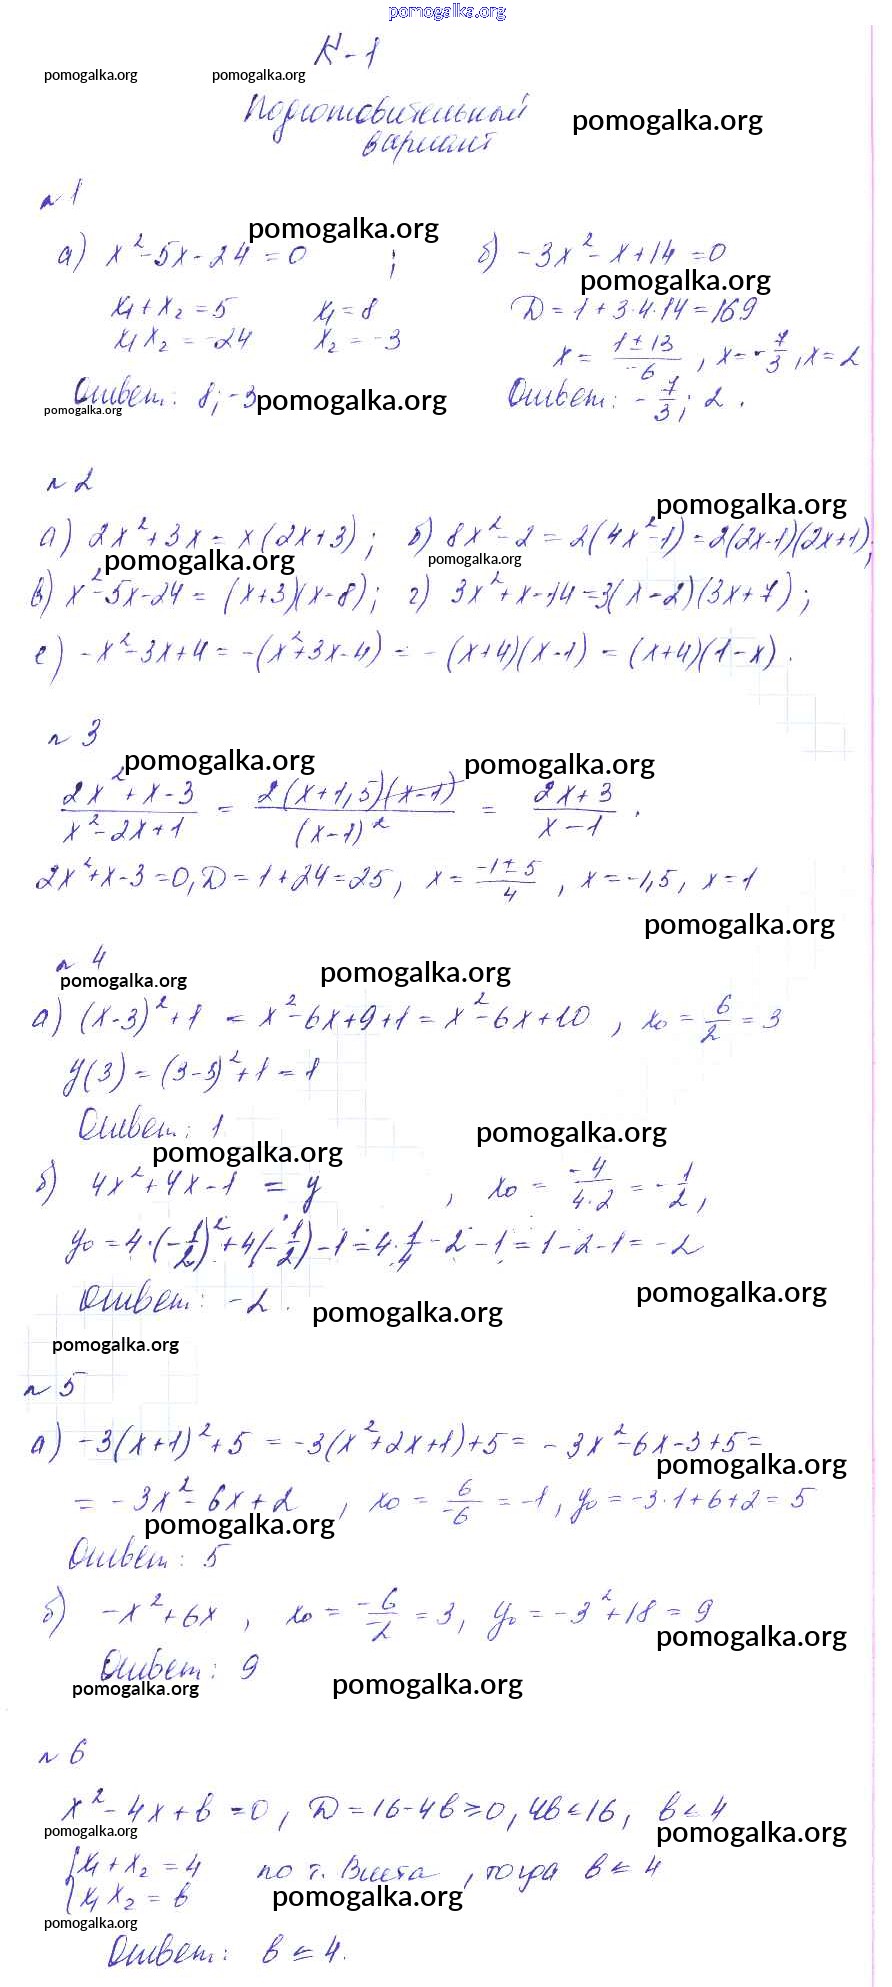 pomogalka.org
К-1
pomogalka.org pomogalka.org
Подготовительный pomogalka.org
вариант
№ 1
pomogalka.org
а) x² - 5x - 24 = 0 ; б) -3x² - x + 14 = 0
pomogalka.org
x₁ + x₂ = 5 x₁ = 8 D = 1 + 3·4·14 = 169
x₁x₂ = -24 x₂ = -3 x = (1 ± 13)/-6 , x = -7/3 , x = 2
Ответ: 8; -3 pomogalka.org Ответ: -7/3 ; 2 .
pomogalka.org
№ 2
pomogalka.org
а) 2x² + 3x = x(2x + 3) ; б) 8x² - 2 = 2(4x² - 1) = 2(2x - 1)(2x + 1);
pomogalka.org pomogalka.org
в) x² - 5x - 24 = (x + 3)(x - 8) ; г) 3x² + x - 14 = 3(x - 2)(3x + 7) ;
е) -x² - 3x + 4 = -(x² + 3x - 4) = -(x + 4)(x - 1) = (x + 4)(1 - x) .
№ 3
pomogalka.org pomogalka.org
(2x² + x - 3)/(x² - 2x + 1) = 2(x + 1,5)(x - 1)/(x - 1)² = (2x + 3)/(x - 1) .
2x² + x - 3 = 0, D = 1 + 24 = 25 , x = (-1 ± 5)/4 , x = -1,5 , x = 1
pomogalka.org
№ 4
pomogalka.org pomogalka.org
а) (x - 3)² + 1 = x² - 6x + 9 + 1 = x² - 6x + 10 , x₀ = 6/2 = 3
y(3) = (3 - 3)² + 1 = 1
Ответ: 1
pomogalka.org pomogalka.org
б) 4x² + 4x - 1 = y , x₀ = -4/(4·2) = -1/2 ,
y₀ = 4·(-1/2)² + 4(-1/2) - 1 = 4·1/4 - 2 - 1 = 1 - 2 - 1 = -2
Ответ: -2 . pomogalka.org pomogalka.org
pomogalka.org
№ 5
а) -3(x + 1)² + 5 = -3(x² + 2x + 1) + 5 = -3x² - 6x - 3 + 5 =
pomogalka.org
= -3x² - 6x + 2 , x₀ = 6/-6 = -1 , y₀ = -3·1 + 6 + 2 = 5
pomogalka.org
Ответ: 5
б) -x² + 6x , x₀ = -6/-2 = 3 , y₀ = -3² + 18 = 9
pomogalka.org
Ответ: 9
pomogalka.org pomogalka.org
№ 6
x² - 4x + b = 0 , D = 16 - 4b ≥ 0 , 4b ≤ 16 , b ≤ 4
pomogalka.org pomogalka.org
{ x₁ + x₂ = 4 по т. Виета , тогда b ≤ 4
x₁x₂ = b pomogalka.org
pomogalka.org
Ответ: b ≤ 4 .